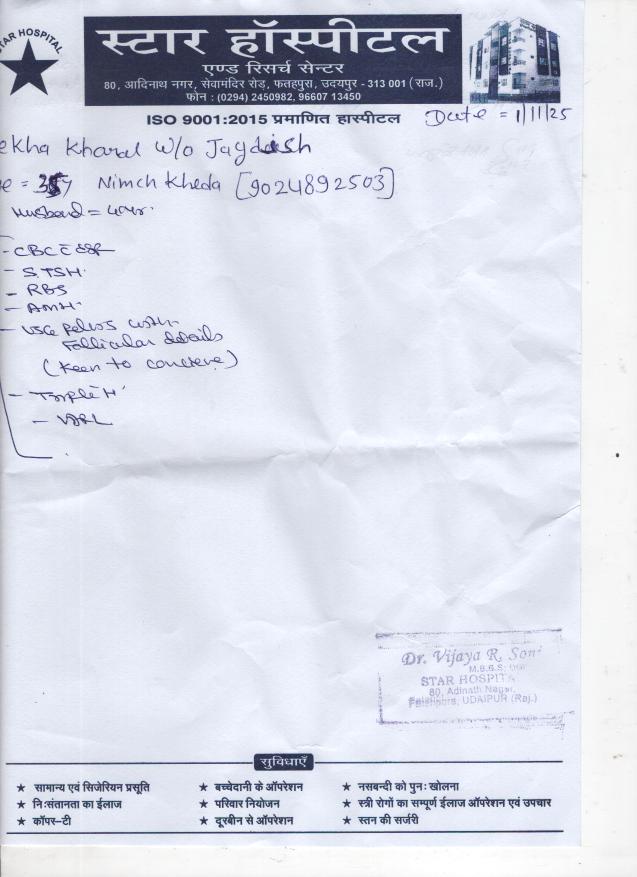 STAR HOSPITAL
स्टार हॉस्पीटल
एण्ड रिसर्च सेन्टर
80, आदिनाथ नगर, सेवामंदिर रोड़, फतहपुरा, उदयपुर - 313 001 (राज.)
फोन : (0294) 2450982, 96607 13450
ISO 9001:2015 प्रमाणित हास्पीटल
Date = 1/11/25
ekha Kharol w/o Jagdish
Nimch Kheda [9024892503]
Husband = 40yr.
- CBC c ESR
- S. TSH.
- RBS
- AMH.
- USG Pelvis with
Follicular details
(Keen to conceive)
- Triple H.
- VDRL
Dr. Vijaya R. Soni
M.B.B.S.
STAR HOSPITA
80, Adinath Nagar,
Fatehpura, UDAIPUR (Raj.)
सुविधाएँ
★ सामान्य एवं सिजेरियन प्रसूति ★ बच्चेदानी के ऑपरेशन ★ नसबन्दी को पुनः खोलना
★ निःसंतानता का ईलाज ★ परिवार नियोजन ★ स्त्री रोगों का सम्पूर्ण ईलाज ऑपरेशन एवं उपचार
★ कॉपर-टी ★ दूरबीन से ऑपरेशन ★ स्तन की सर्जरी